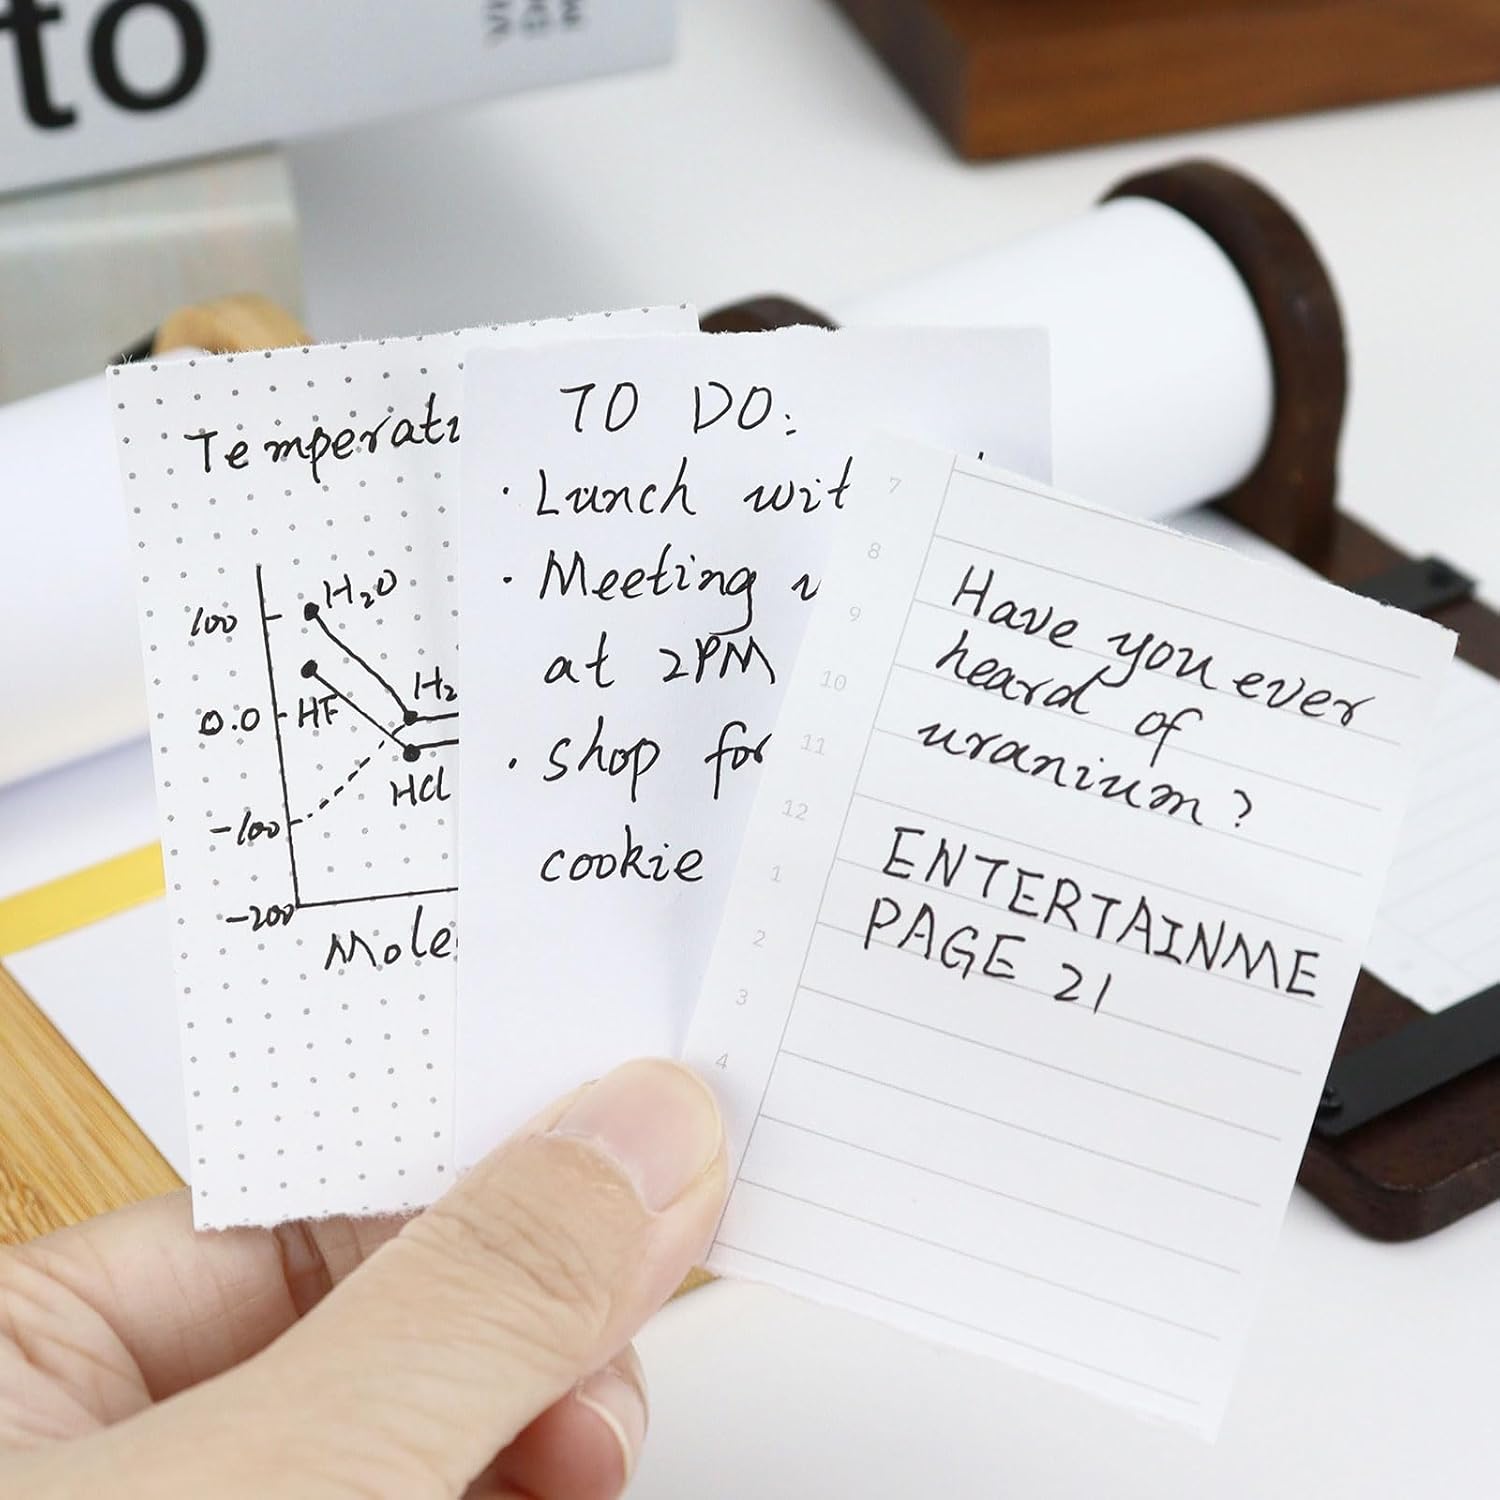 to
Temperat
100
H₂O
0.0
HF
H₂
HCl
-100
-200
Mole
TO DO:
· Lunch wit
· Meeting
at 2PM
· shop for
cookie
7
8
9
10
11
12
1
2
3
4
Have you ever
heard of
uranium?
ENTERTAINME
PAGE 21